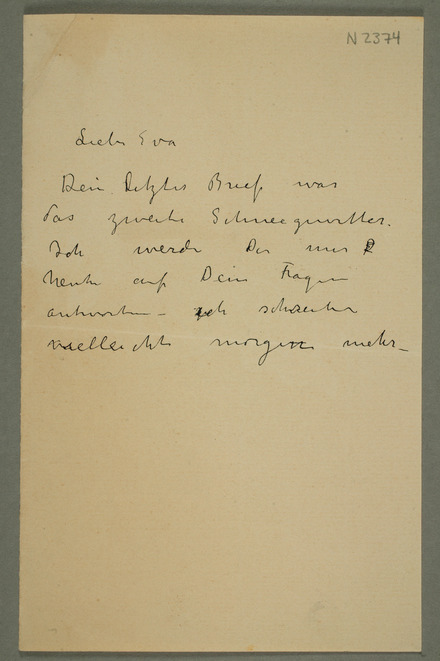 N 2374
Liebe Eva
Dein letzter Brief war
das zweite Schneegewitter.
Ich werde Dir nur
heute auf Dein Fragen
antworten – ich schreibe
vielleicht morgen mehr –